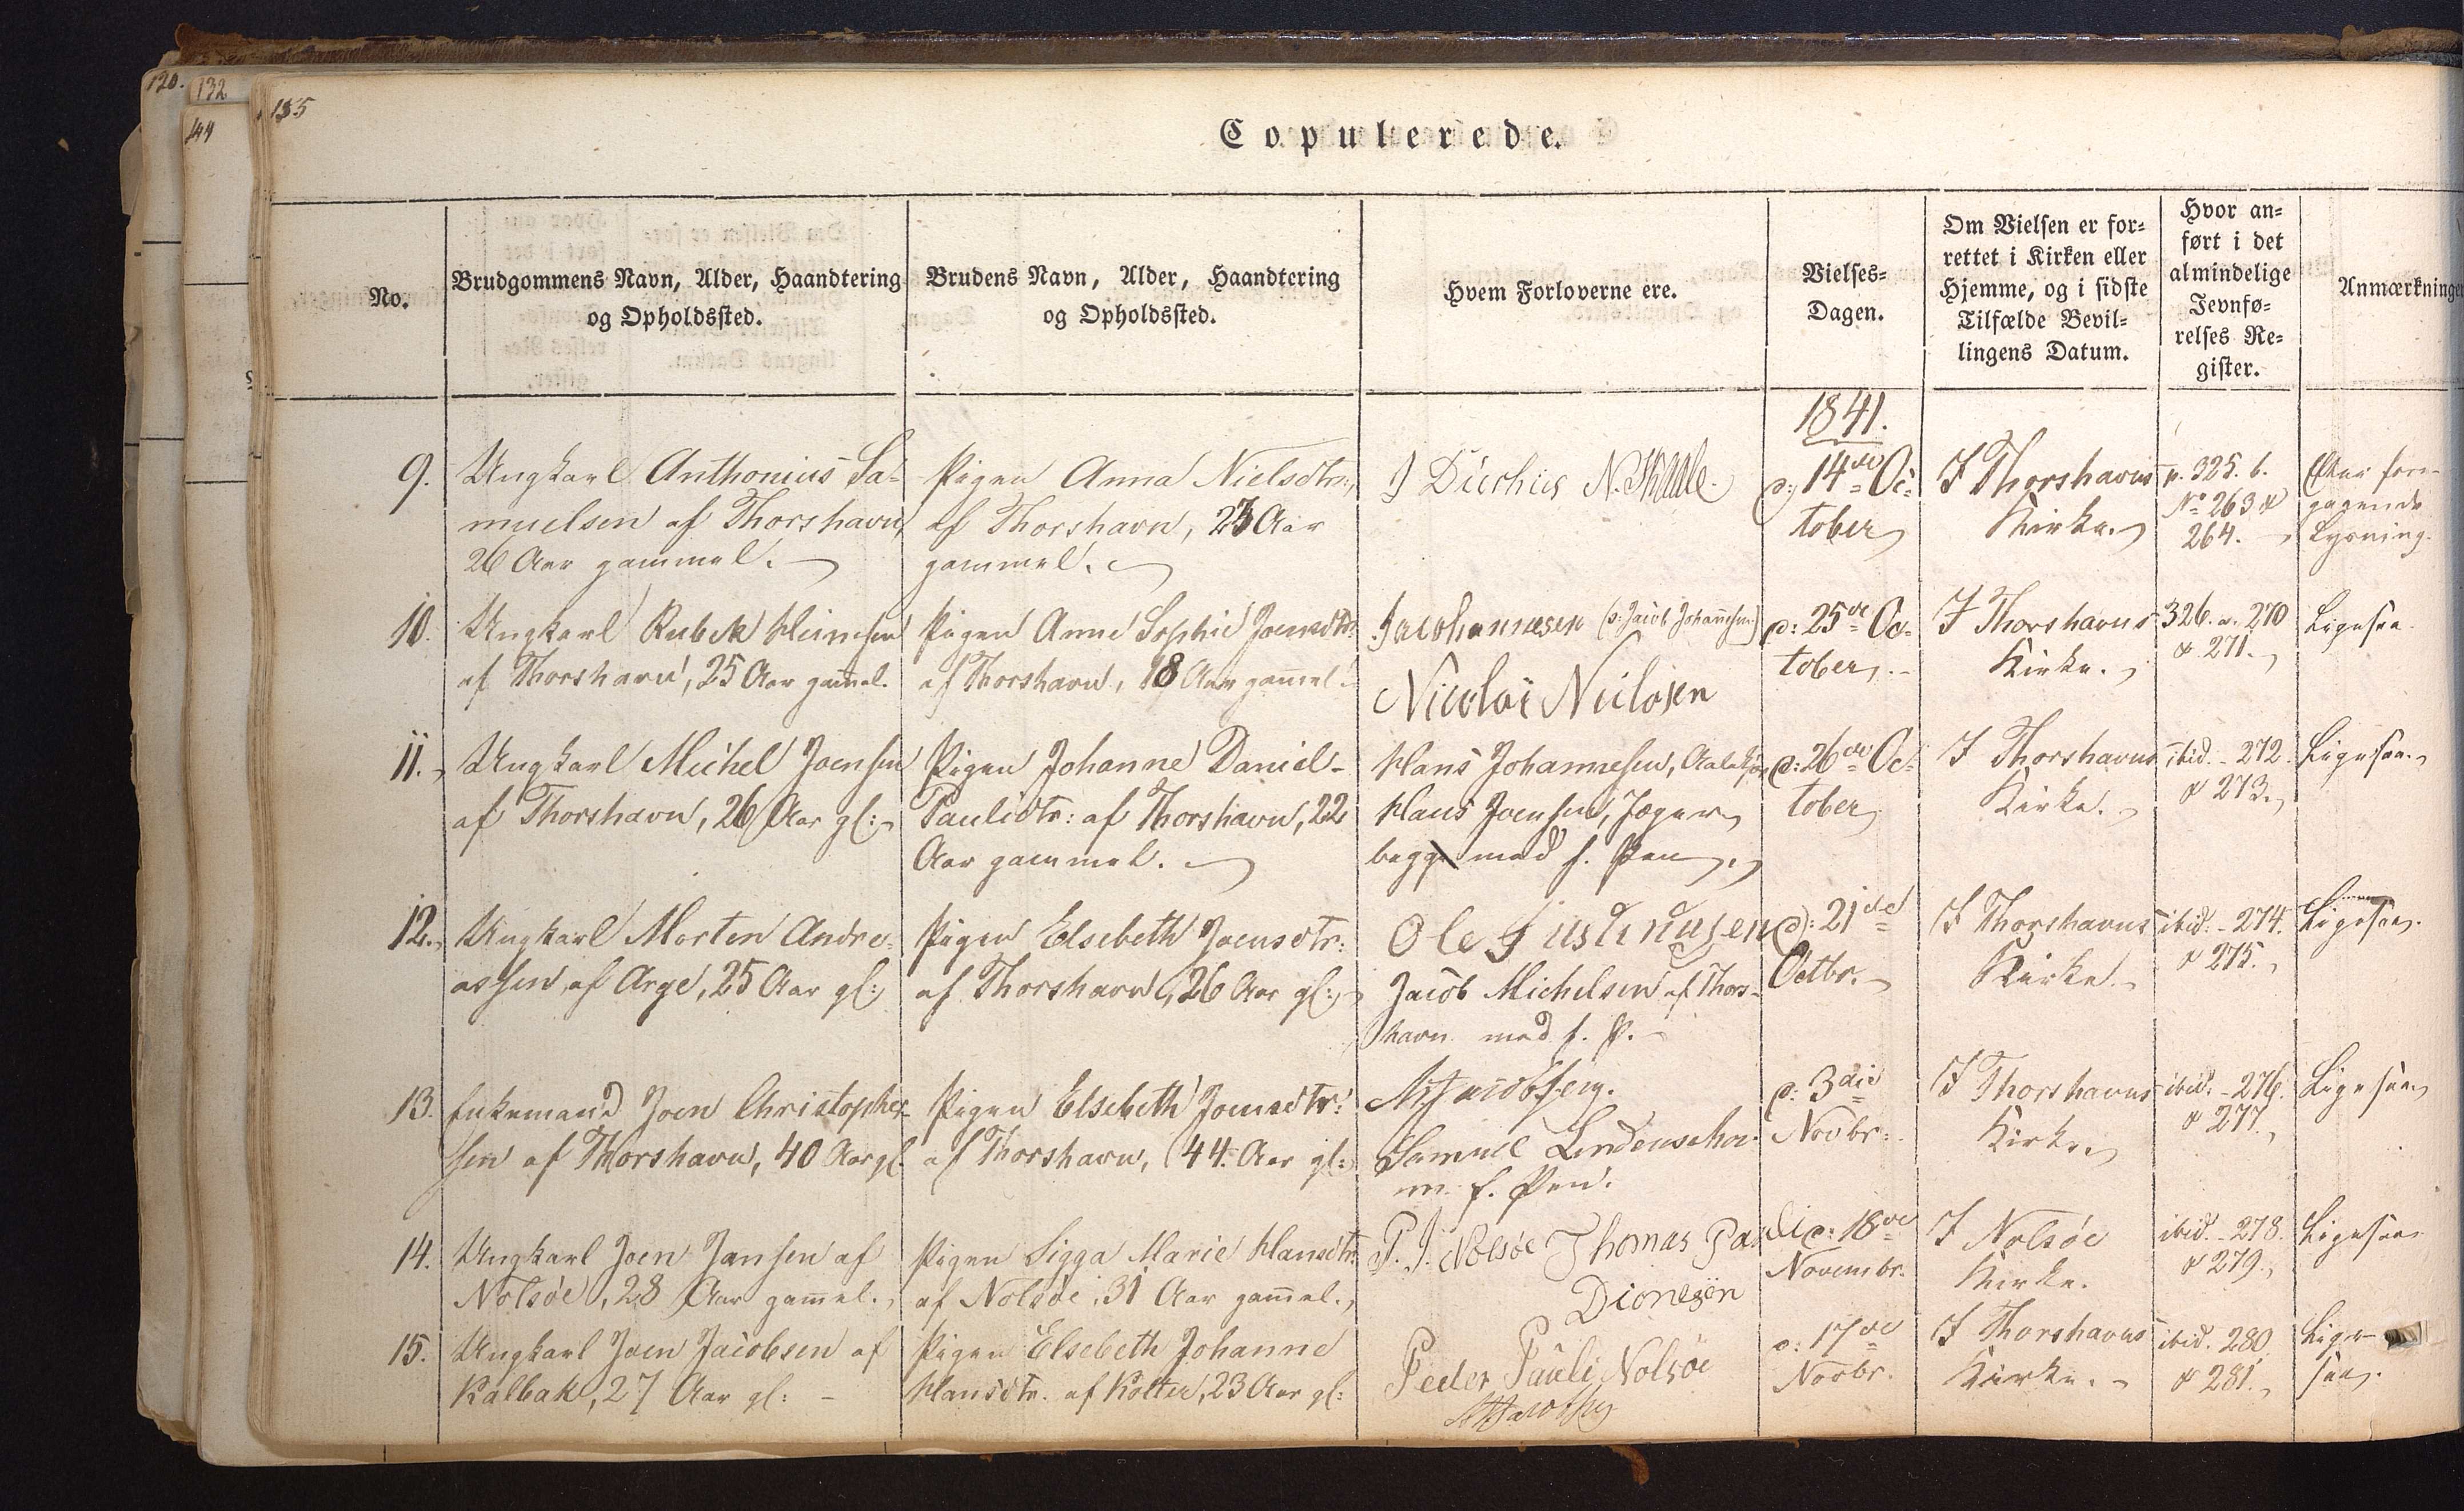 120.
132
144
135
Copulerede.
No.
Brudgommens Navn, Alder, Haandtering
og Opholdssted.
Brudens Navn, Alder, Haandtering
og Opholdssted.
Hvem Forloverne ere.
Vielses-
Dagen.
Om Vielsen er for-
rettet i Kirken eller
Hjemme, og i sidste
Tilfælde Bevil-
lingens Datum.
Hvor an-
ført i det
almindelige
Jevnfø-
relses Re-
gister.
Anmærkninge
1841.
9.
Ungkarl Anthonius Sa-
muelsen af Thorshavn,
26 Aar gammel.
Pigen Anna Nielsdtr:,
af Thorshavn, 23 Aar
gammel.
J Durhus N.
d: 14de Oc-
tober
I Thorshavns
Kirke.
p. 325. b.
No 263 &
264.
Efter fore-
gagende
Lysning.
10.
Ungkarl Rubek Heinesen
af Thorshavn, 25 Aar gam̄el.
Pigen Anne Sophie Joensdtr:
af Thorshavn, 18 Aar gam̄el.
Jacohannesen (o: Jacob Johan̄esen)
Nicolai Neilosen
d: 25de Oc-
tober.
I Thorshavns
Kirke.
326. a. 270
& 271.
Ligesaa.
11.
Ungkarl Michel Joensen
af Thorshavn, 26 Aar gl:
Pigen Johanne Daniel-
Paulidtr: af Thorshavn, 22
Aar gammel.
Hans Johannesen,
Hans Joensen, Jæger,
begge med f. Pen
d: 26de Oc-
tober
I Thorshavns
Kirke.
ibid. - 272.
& 273.
Ligesaa.
12.
Ungkarl Morten Andre-
assen, af Arge, 25 Aar gl:
Pigen Elsebeth Joensdtr:
af Thorshavn, 26 Aar gl:
Ole Justinusen
Jacob Michelsen af Thors-
havn med f. P.
d: 21de
Octbr.
I Thorshavns
Kirke.
ibid. - 274.
& 275.
Ligesaa.
13.
Enkemand Joen Christopher-
sen af Thorshavn, 40 Aar gl.
Pigen Elsebeth Joensdtr:
af Thorshavn, 44. Aar gl:
Samuel Lindenschov
m. f. Pen.
d: 3die
Novbr:
I Thorshavns
Kirke.
ibid. - 276.
& 277.
Ligesaa
14.
Ungkarl Joen Jansen af
Nolsöe, 28 Aar gam̄el.
Pigen Sigga Marie Hansdtr.
af Nolsöe, 31 Aar gam̄el.
P. J. Nolsöe Thomas Pauli
Dionesen
d: 18de
Novembr.
I Nolsöe
Kirke.
ibid. - 278.
& 279.
Ligesaa
15.
Ungkarl Joen Jacobsen af
Kalbak, 27 Aar gl: -
Pigen Elsebeth Johanne
Hansdtr. af Kolter, 23 Aar gl:
Peder Pauli Nolsöe
d: 17de
Novbr.
I Thorshavns
Kirke.
ibid. 280
& 281.
Lige-
saa.